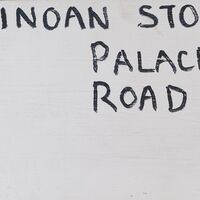 INOAN STO
PALAC
ROAD